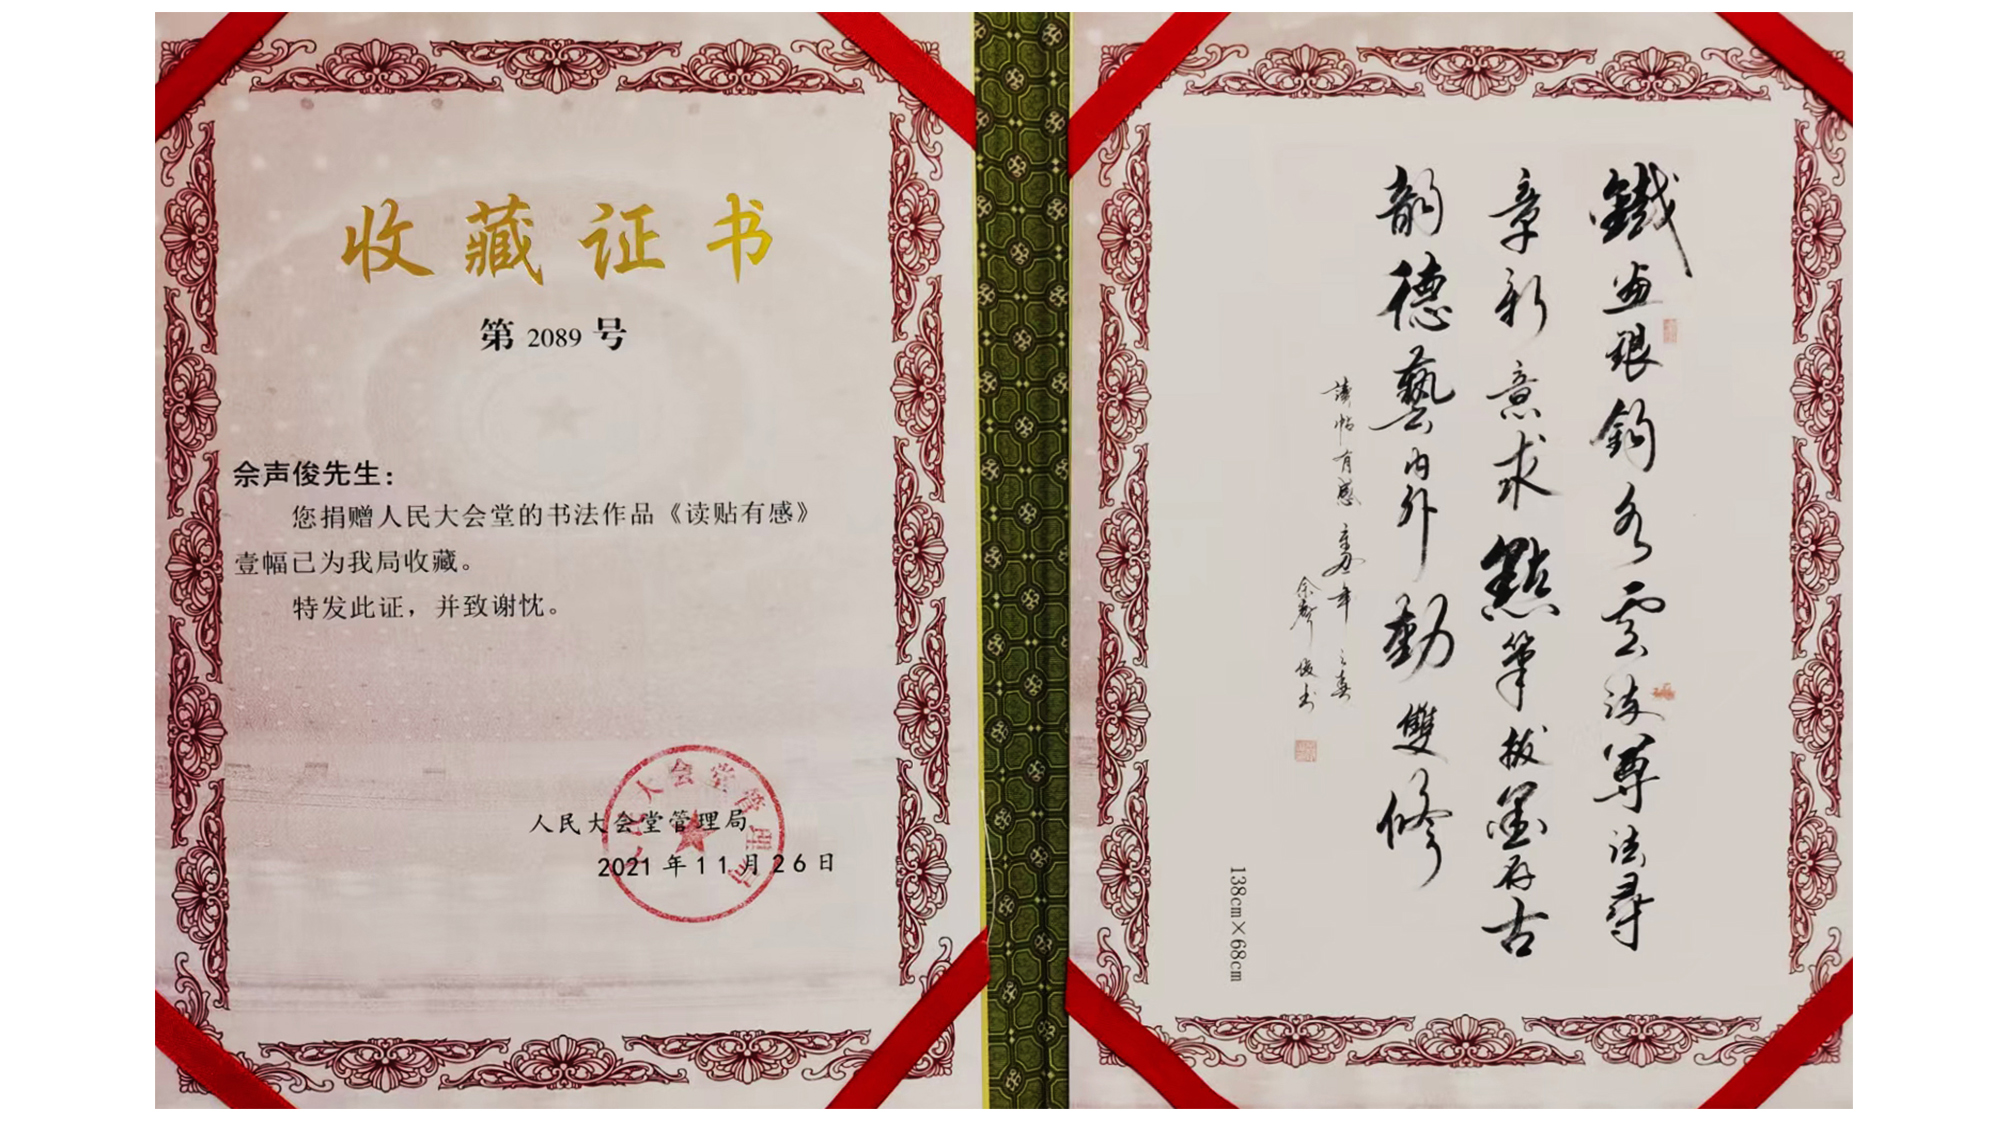 收藏证书
第 2089 号
佘声俊先生：
您捐赠人民大会堂的书法作品《读贴有感》
壹幅已为我局收藏。
特发此证，并致谢忱。
人民大会堂管理局
2021年11月26日
人民大会堂管理局
鐵画銀鈎雲流尊法尋
章新意求點筆拔墨存古
韵德藝内外勤雙修
讀帖有感辛丑年之春
佘聲俊书
138cm×68cm